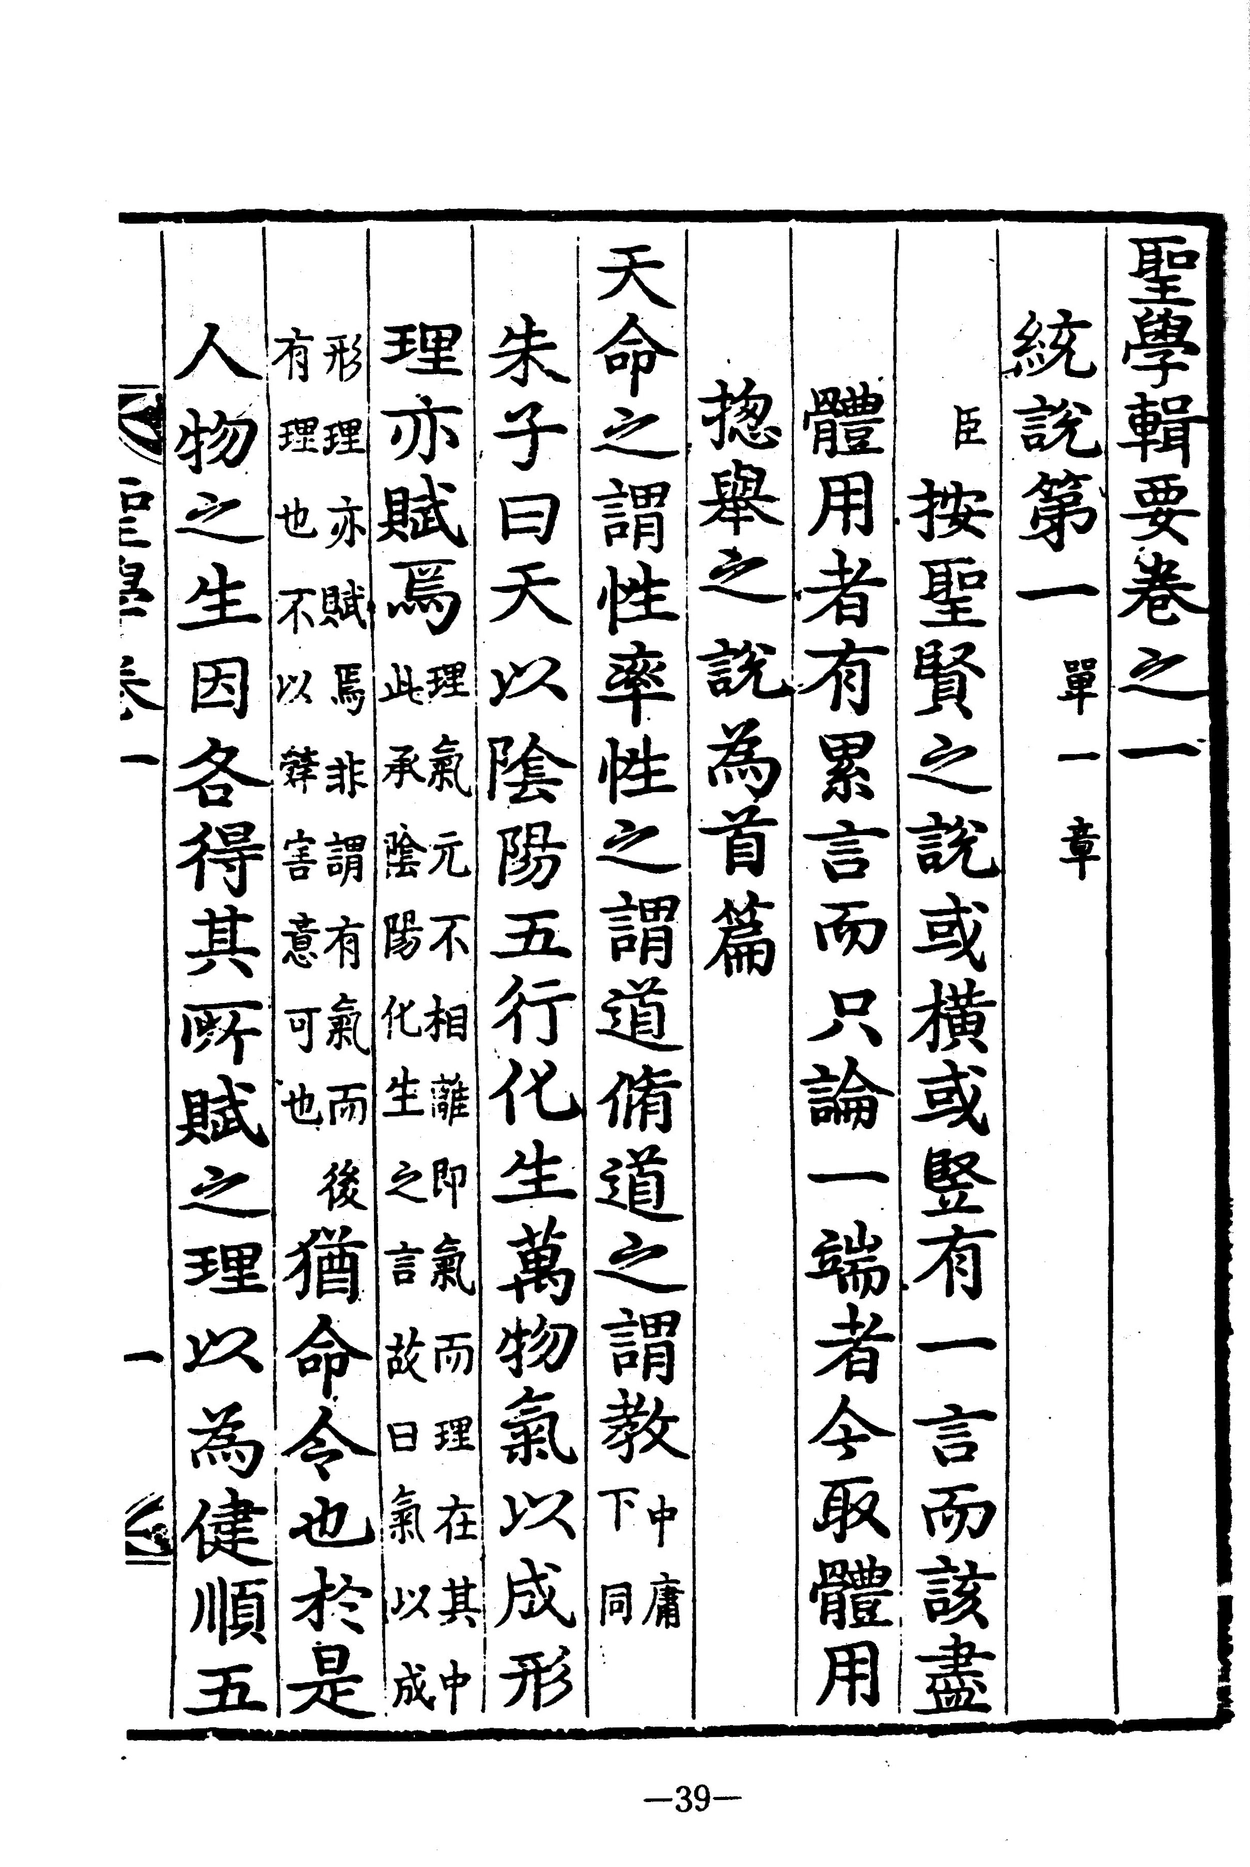 聖學輯要卷之一
統說第一單一章
臣按聖賢之說或橫或豎有一言而該盡
體用者有累言而只論一端者今取體用
揔舉之說為首篇
天命之謂性率性之謂道脩道之謂教中庸下同
朱子曰天以陰陽五行化生萬物氣以成形
理亦賦焉理氣元不相離即氣而理在其中此承陰陽化生之言故曰氣以成
形理亦賦焉非謂有氣而後有理也不以辭害意可也猶命令也於是
人物之生因各得其所賦之理以為健順五
聖學卷一
一
—39—